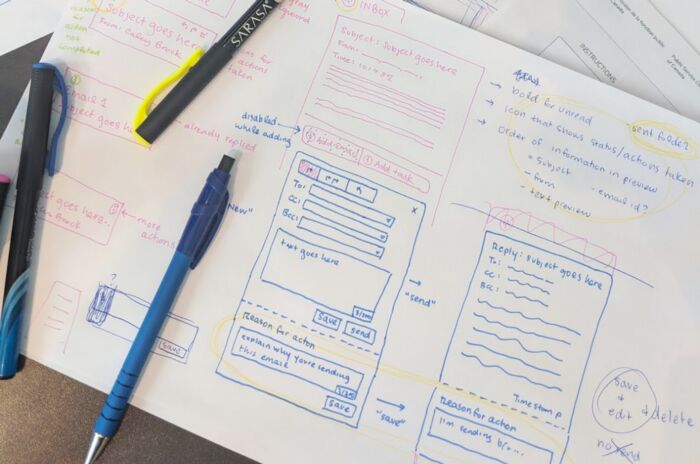 Subject goes here
From: Casey Brock
for action
not
completed
SARASA
actions
taken
Email 1
Subject goes here
already replied
Subject goes here...
more
actions
?
save
INBOX
Subject: Subject goes here
From:
Time:
disabled
while adding
Add email
Add task
New"
To:
CC:
Bcc:
x
text goes here
save
send
Reason for acton
explain why you're sending
this email
save
"send"
"save"
INSTRUCTIONS
→ bold for unread
→ Icon that shows status/actions taken
→ Order of information in preview
• subject
- from
- text preview
- email id?
sent folder
Reply: Subject goes here
To:
CC:
Bcc:
Timestamp
Reason for action
I'm sending b/c...
save
+
edit
+ delete
no send